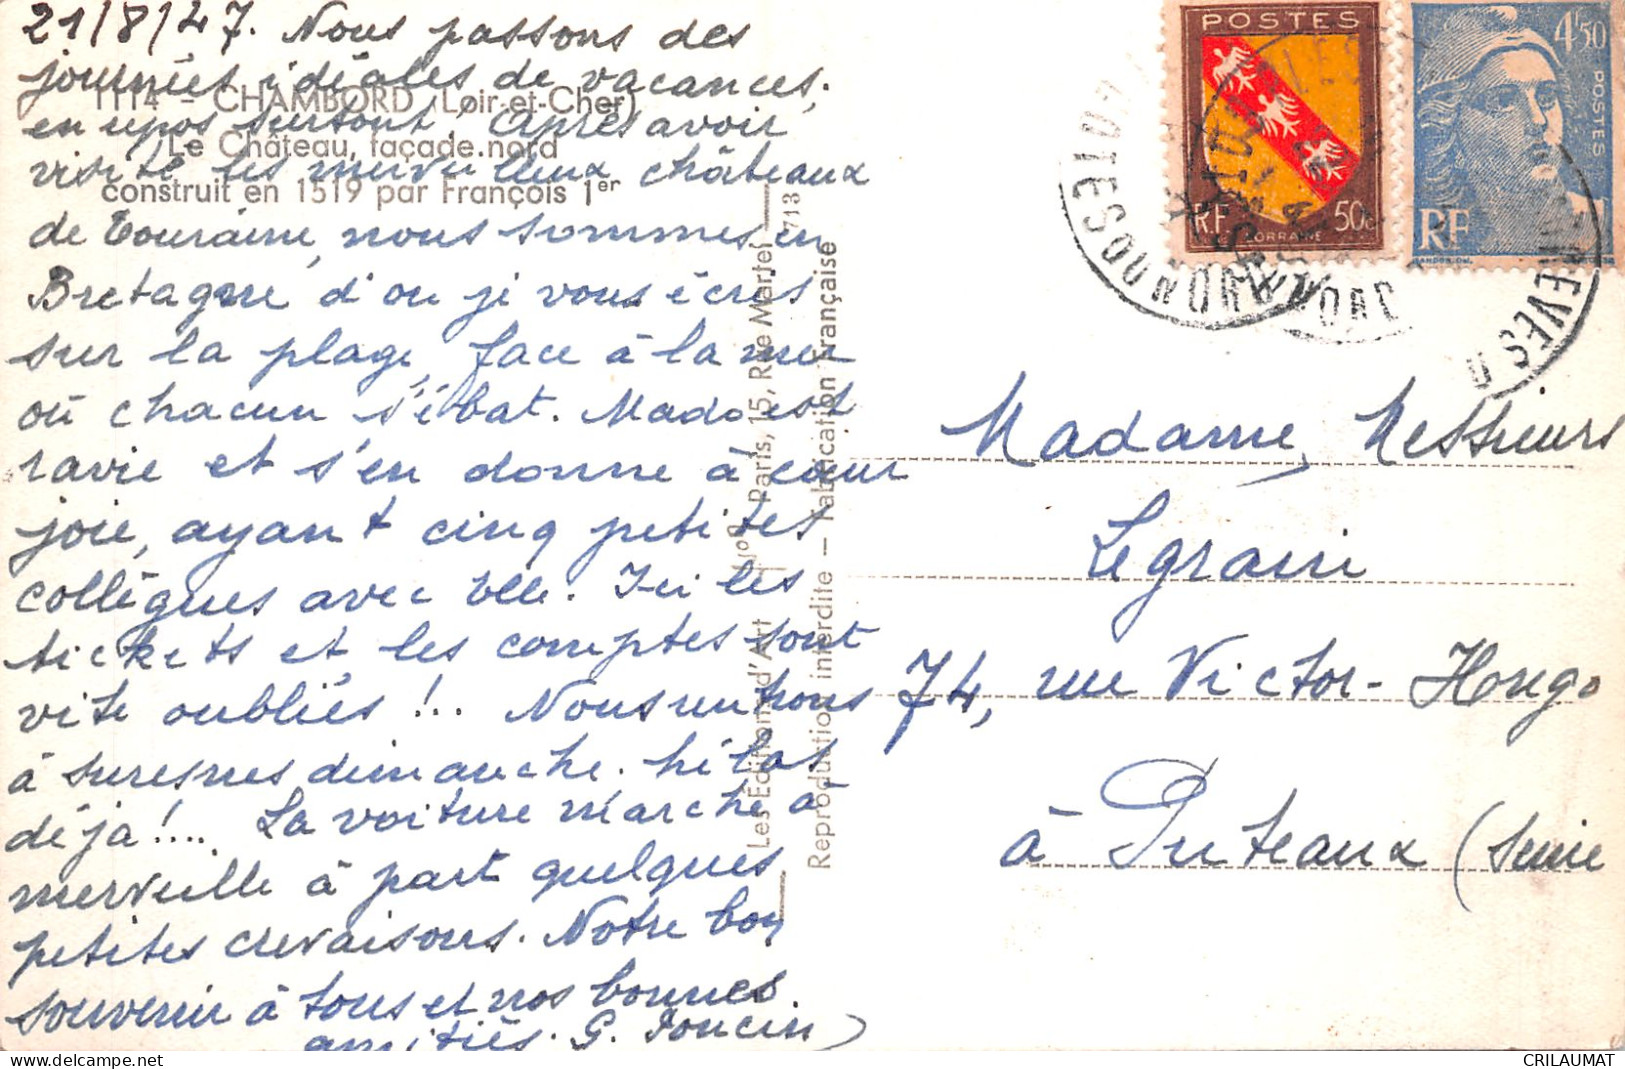 21/8/47. Nous passons des
journées idéales de vacances,
en repos surtout. Après avoir
visité les merveilleux châteaux
de Touraine, nous sommes en
Bretagne d'où je vous écris
sur la plage, face à la mer
où chacun s'ébat. Mado est
ravie et s'en donne à cœur
joie, ayant cinq petites
collègues avec elle. Ici les
tickets et les comptes sont
vite oubliés !.. Nous rentrons
à Suresnes dimanche. hélas
déjà !.... La voiture marche à
merveille à part quelques
petites crevaisons. Notre bon
souvenir à tous et nos bonnes
amitiés. G.
1114 - CHAMBORD (Loir-et-Cher)
Le Château, façade nord
construit en 1519 par François 1er
Les Éditions d'Art
Paris, 15, Rue Martel
713
Reproduction interdite — Fabrication Française
POSTES
RF
LORRAINE
50c
4f50
POSTES
RF
COTES DU NORD
Madame, Messieurs
Legrain
74, rue Victor-Hougo
à Puteaux (Seine
CRILAUMAT